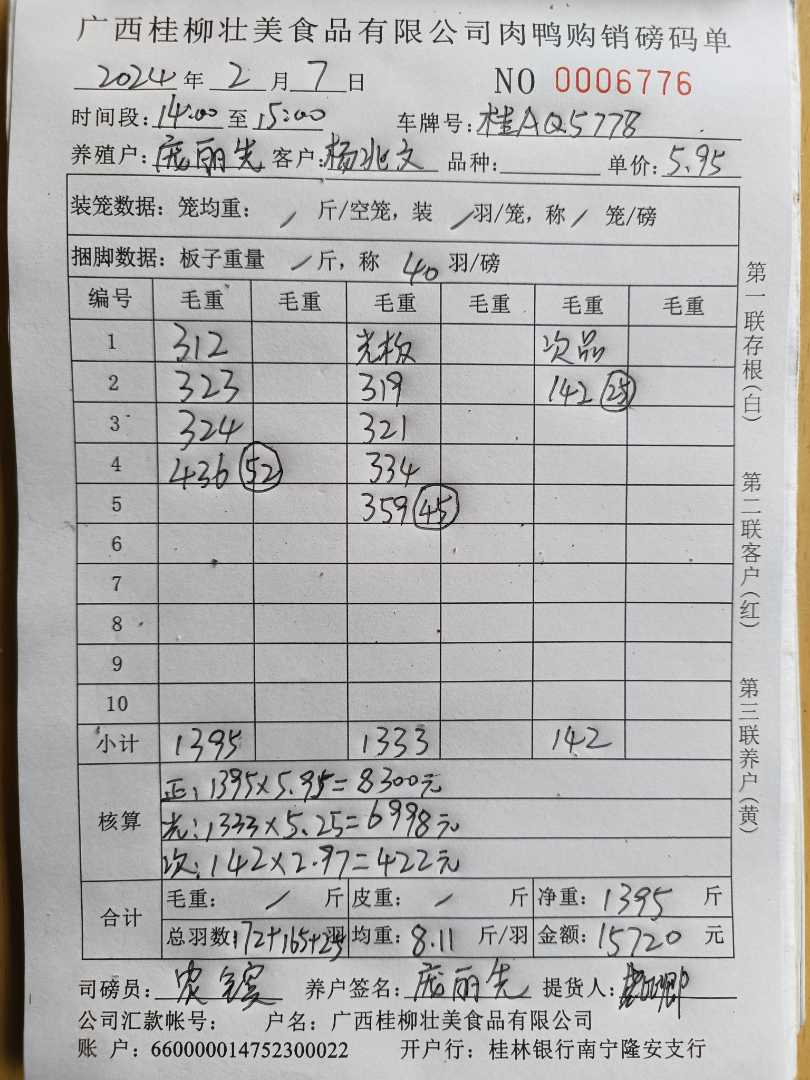 广西桂柳壮美食品有限公司肉鸭购销磅码单
2024年 2月 7日 NO 0006776
时间段:14:00至15:00 车牌号:桂AQ5778
养殖户:庞丽先 客户:杨兆文 品种: 单价:5.95
装笼数据:笼均重: / 斤/空笼,装 /羽/笼,称 / 笼/磅
捆脚数据:板子重量 /斤,称 40 羽/磅
编号 毛重 毛重 毛重 毛重 毛重 毛重
1 312 光板 次品
2 323 319 142 (25)
3 324 321
4 436 (52) 334
5 359 (45)
6
7
8
9
10
小计 1395 1333 142
核算
正:1395×5.95=8300元
光:1333×5.25=6998元
次:142×2.97=422元
合计
毛重: / 斤 皮重: / 斤 净重:1395 斤
总羽数:172+165+25羽 均重:8.11 斤/羽 金额:15720 元
司磅员: 养户签名:庞丽先 提货人:
公司汇款帐号: 户名:广西桂柳壮美食品有限公司
账 户:660000014752300022 开户行:桂林银行南宁隆安支行
第一联存根(白)
第二联客户(红)
第三联养户(黄)